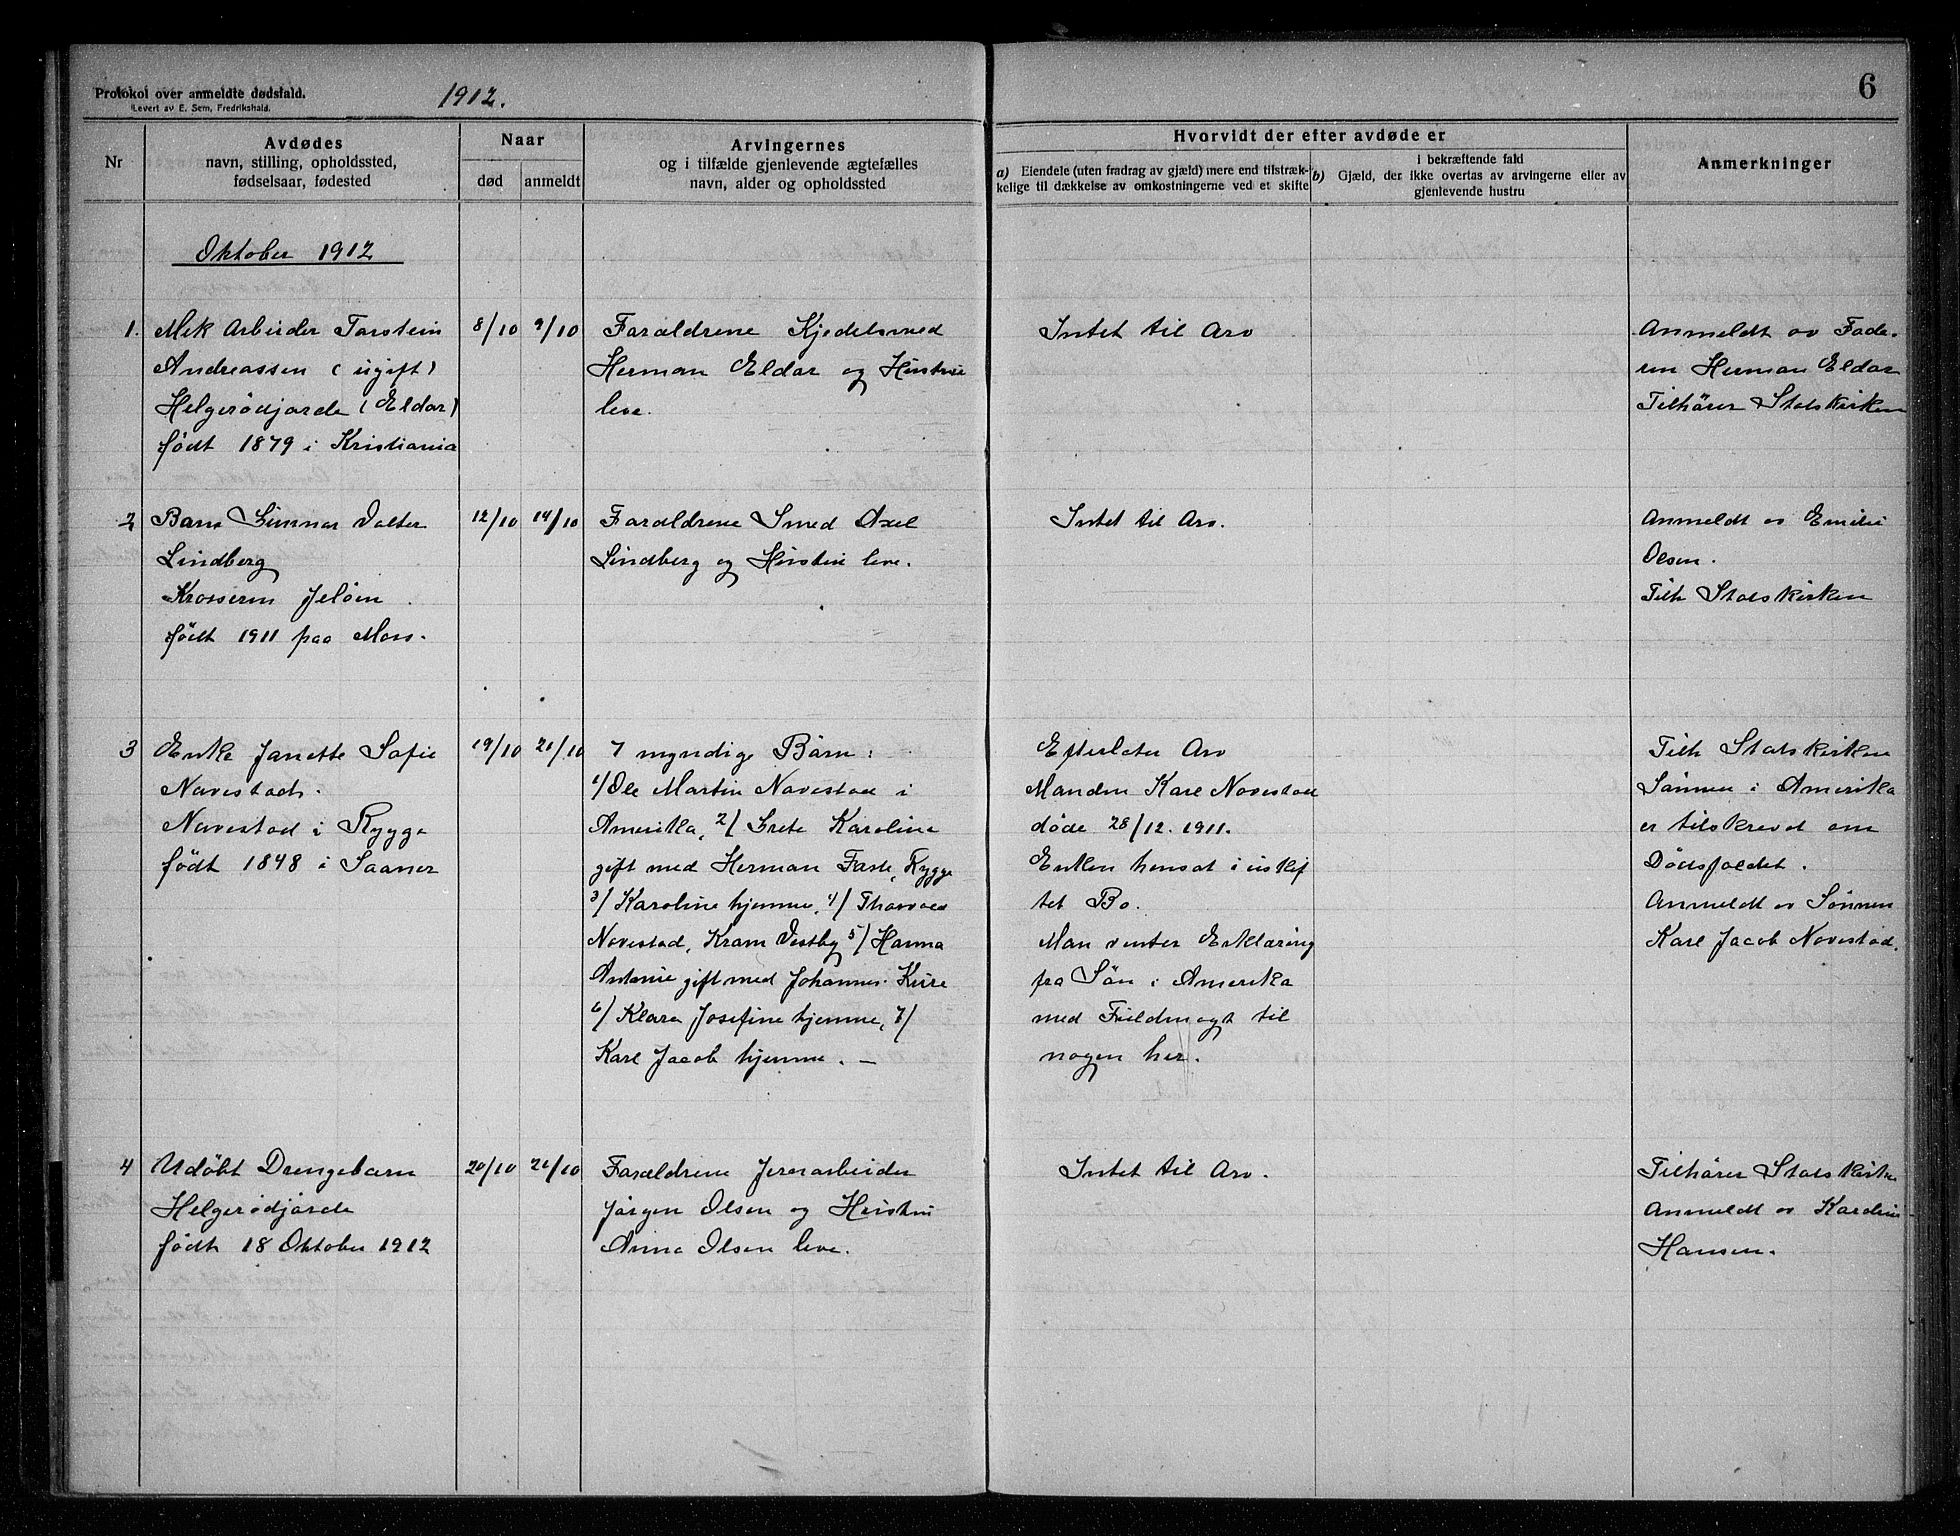 Protokol over anmeldte dødsfald.
Levert av E. Sem, Fredrikshald.
1912.
6
Nr
Avdødes
navn, stilling, opholdssted,
fødselsaar, fødested
Naar
død
anmeldt
Arvingernes
og i tilfælde gjenlevende ægtefælles
navn, alder og opholdssted
Hvorvidt der efter avdøde er
a) Eiendele (uten fradrag av gjæld) mere end tilstræk-
kelige til dækkelse av omkostningerne ved et skifte
b) i bekræftende fald
Gjæld, der ikke overtas av arvingerne eller av
gjenlevende hustru
Anmerkninger
Oktober 1912
1.
Mek Arbeider Torstein
Andreassen (ugift)
Helgerødjorde (Eldor)
født 1879 i Kristiania
8/10
9/10
Forældrene Kjedelsmed
Herman Eldor og Hustru
leve.
Intet til Arv
Anmeldt av Fade-
ren Herman Eldor
Tilhører Statskirken
2
Barn Gunnar Valter
Lindberg
Krosseren Jeløen
født 1911 paa Moss.
12/10
14/10
Forældrene Smed Axel
Lindberg og Hustru leve.
Intet til Arv.
Anmeldt av Emilie
Olsen.
Tilh Statskirken
3
Enke Janette Sofie
Navestad.
Navestad i Rygge
født 1848 i Saaner
19/10
21/10
7 myndige Børn:
1/ Ole Martin Navestad i
Amerika, 2/ Grete Karoline
gift med Herman Faste, Rygge
3/ Karoline hjemme, 4/ Thorvald
Navestad, Kram Vestby 5/ Hanna
Antonie gift med Johannes Kure
6/ Klara Josefine hjemme, 7/
Karl Jacob hjemme. —
Efterlater Arv
Manden Karl Navestad
døde 28/12. 1911.
Enken hensat i uskif
tet Bo.
Man venter Erklæring
fra Søn i Amerika
med Fuldmagt til
nogen her.
Tilh Statskirken
Sønnen i Amerika
er tilskrevet om
Dødsfaldet.
Anmeldt av Sønnen
Karl Jacob Navestad.
4
Udøbt Drengebarn
Helgerødjorde
født 18 Oktober 1912
20/10
21/10
Forældrene Jernarbeider
Jørgen Olsen og Hustru
Anna Olsen leve.
Intet til Arv.
Tilhører Statskirke
Anmeldt av Karoline
Hansen.